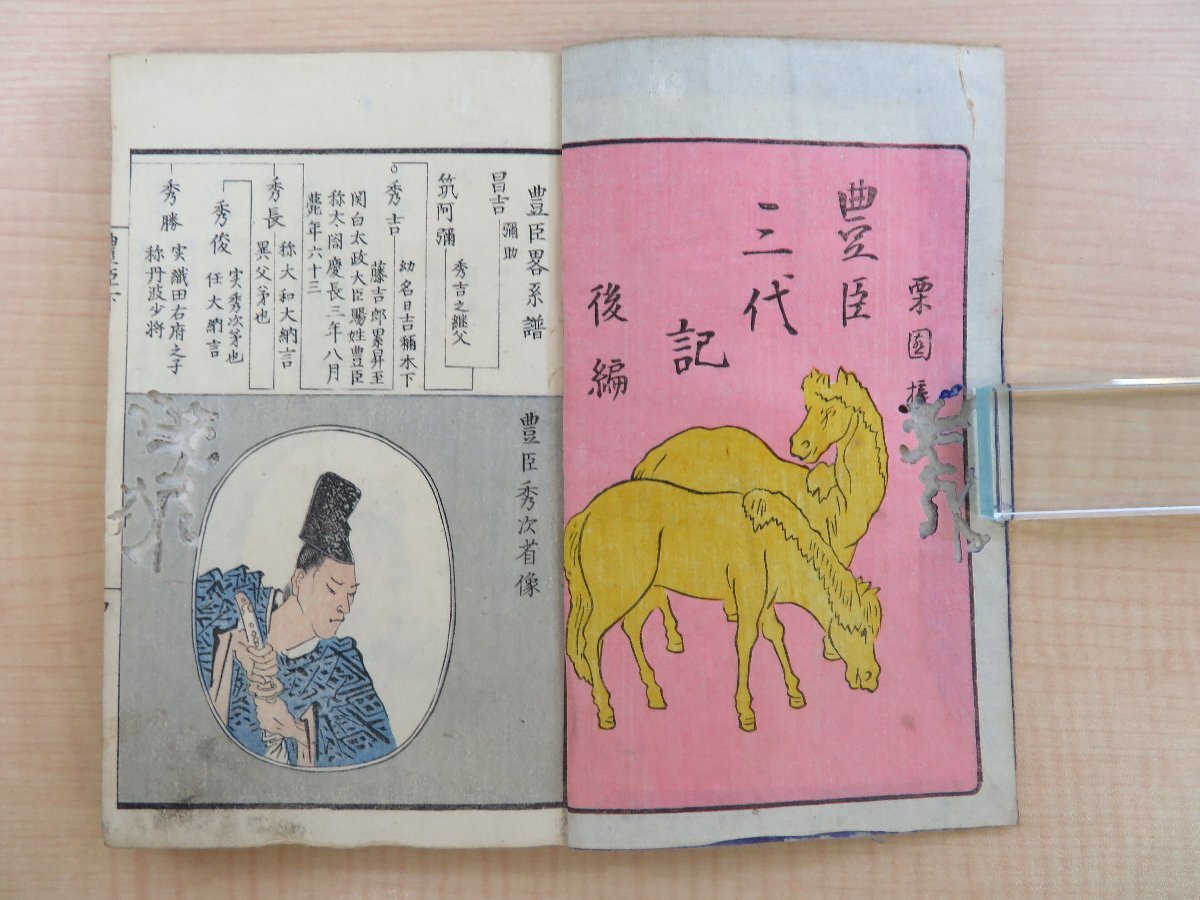 栗園
豊臣
三代
記
後編
豊臣畧系譜
昌吉
彌助
筑阿彌
秀吉之継父
秀吉
幼名日吉稱木下
藤吉郎累昇至
関白太政大臣賜姓豊臣
称太閤慶長三年八月
薨年六十三
秀長
称大和大納言
異父弟也
秀俊
実秀次弟也
任大納言
秀勝
実織田右府之子
称丹波少将
豊臣秀次肖像